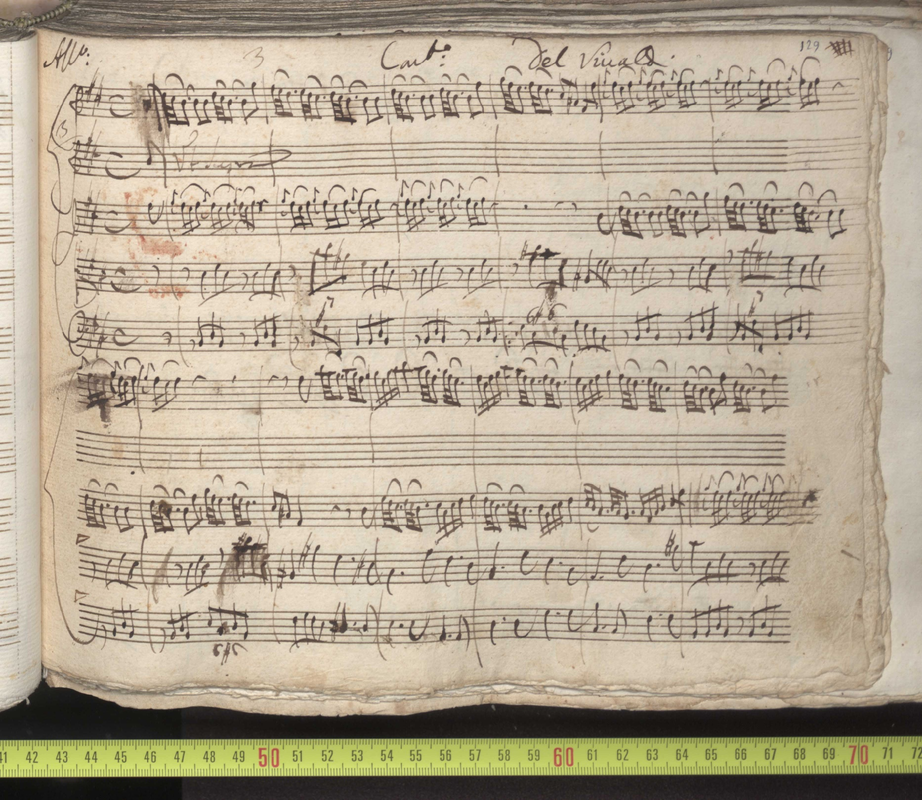 All°: 3 Conto: Del Vivaldi. 129
41 42 43 44 45 46 47 48 49 50 51 52 53 54 55 56 57 58 59 60 61 62 63 64 65 66 67 68 69 70 71 72